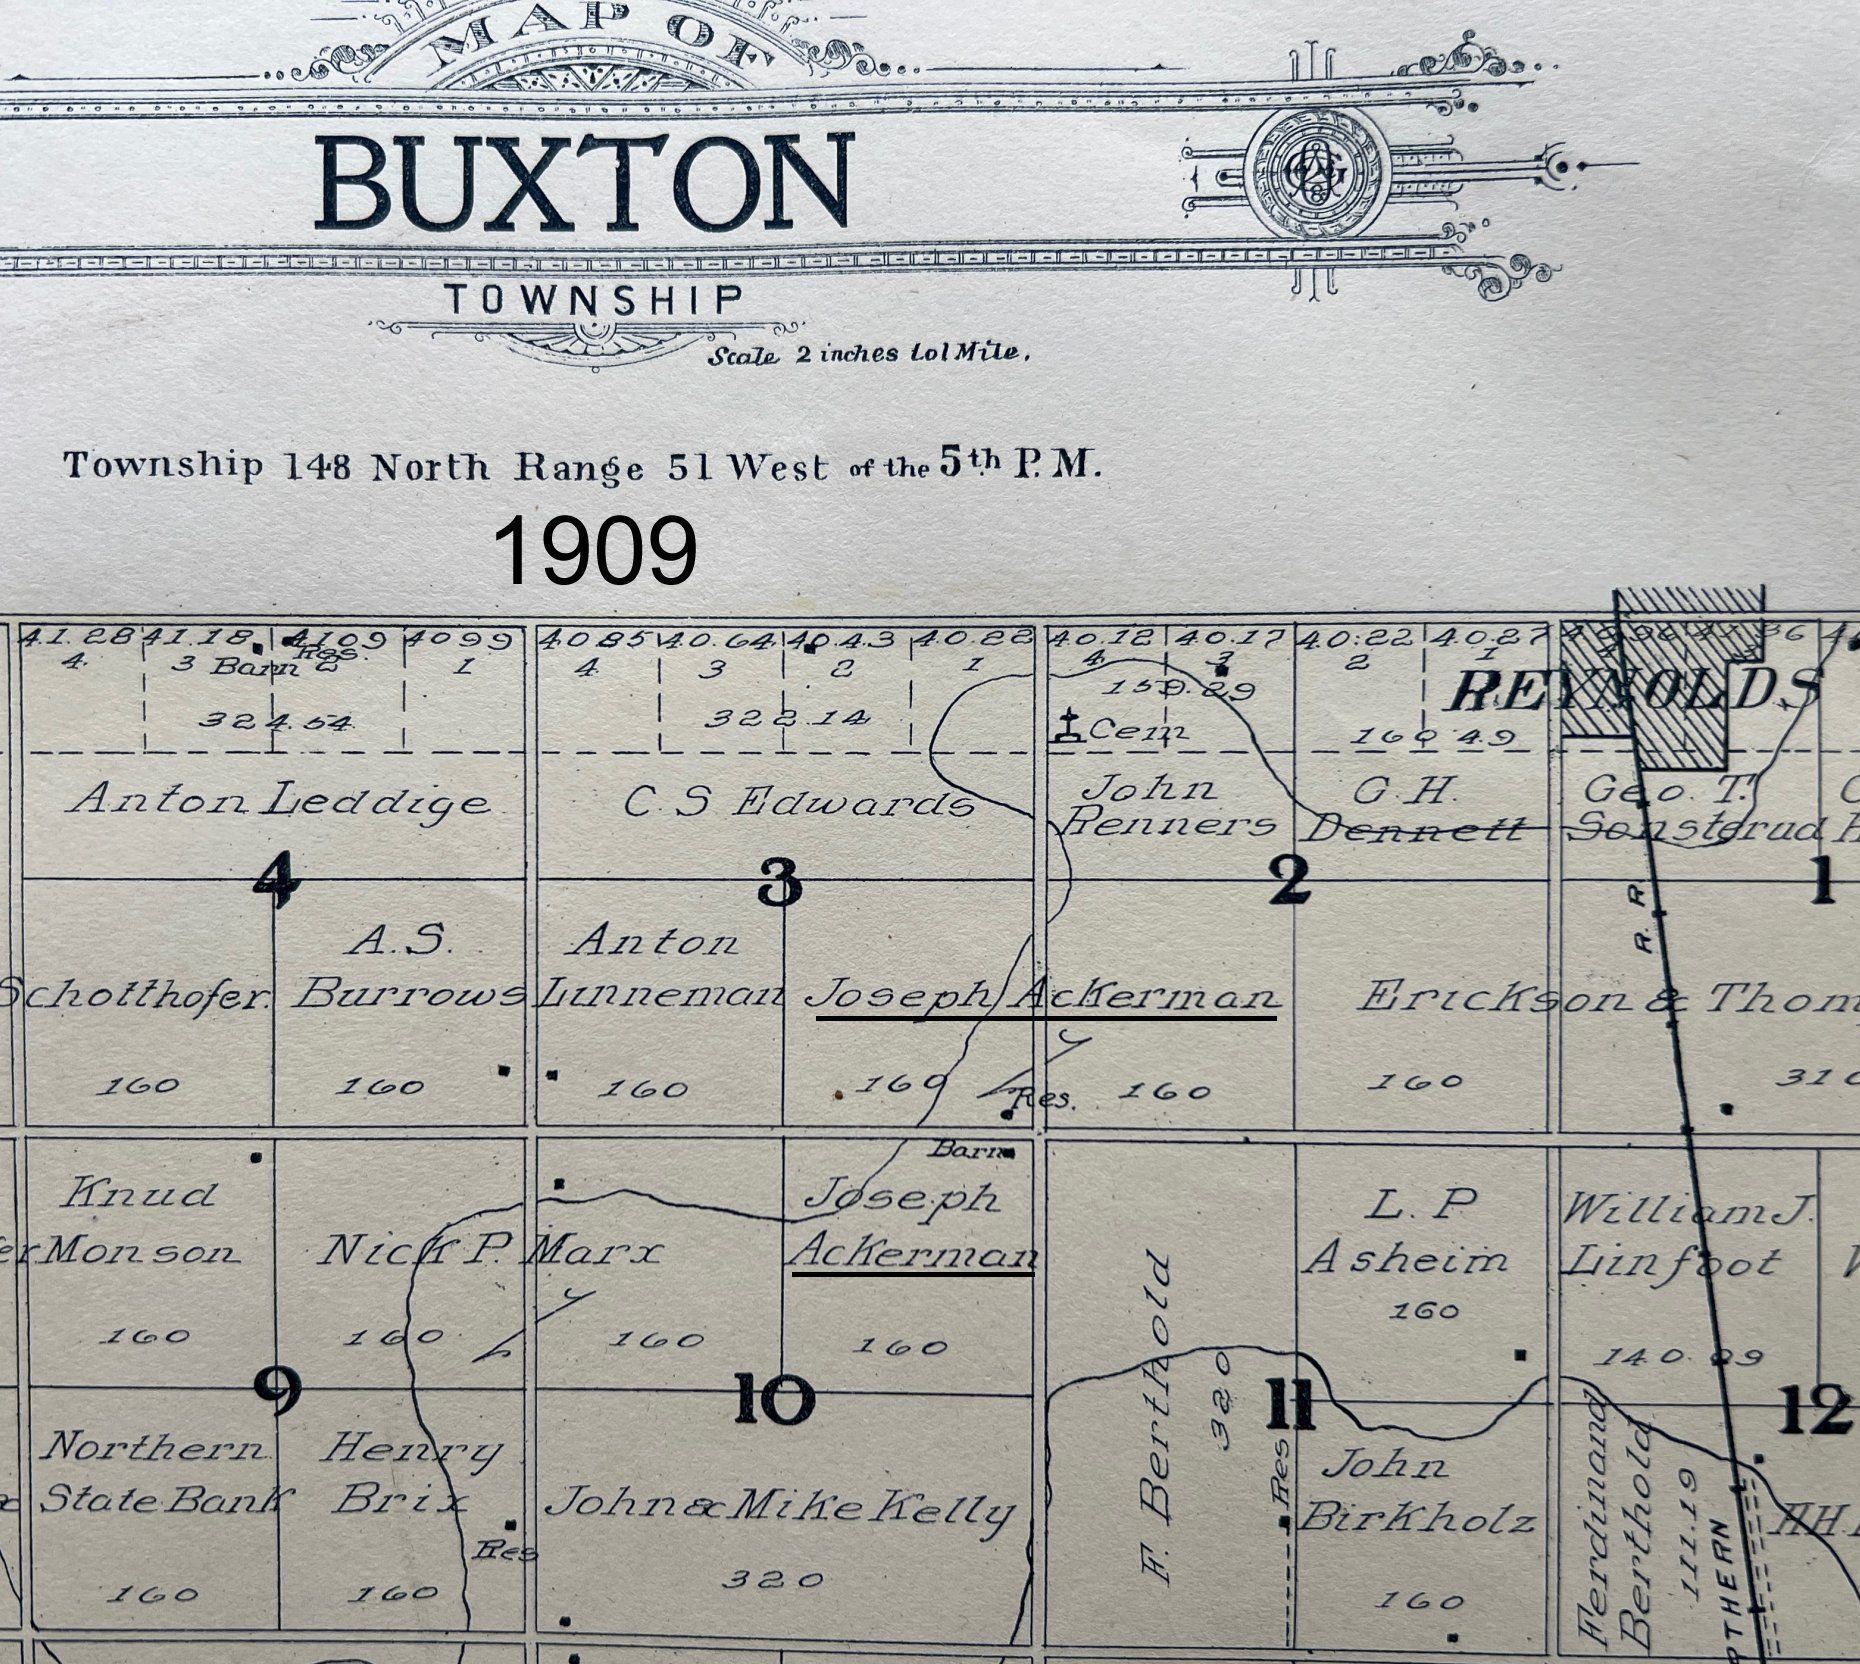 MAP OF
BUXTON
TOWNSHIP
Scale 2 inches to 1 Mile.
Township 148 North Range 51 West of the 5th P. M.
1909
41.28 41.18 4109 4099
4 3 Barn Res. 2 1
324.54
Anton Leddige
4
Schotthofer.
160
A.S.
Burrows
160
4085 40.64 40.43 40.22
4 3 2 1
322.14
C S Edwards
3
Anton
Linneman
160
Joseph Ackerman
160
Res.
160
40.12 40.17 40.22 40.27
4 3 2 1
159.29
Cem
160.49
John
Renners
G.H.
Dennett
2
REYNOLDS
Geo. T.
Sonsterud
1
R. R.
Erickson & Thom
160
Knud
Monson
160
Nick P. Marx
160
160
9
Barn
Joseph
Ackerman
160
10
F. Berthold
320
L. P
Asheim
160
11
William J.
Linfoot
140.89
12
Northern
State Bank
160
Henry
Brix
Res
160
John & Mike Kelly
320
Res
John
Birkholz
160
Ferdinand
Berthold
111.19